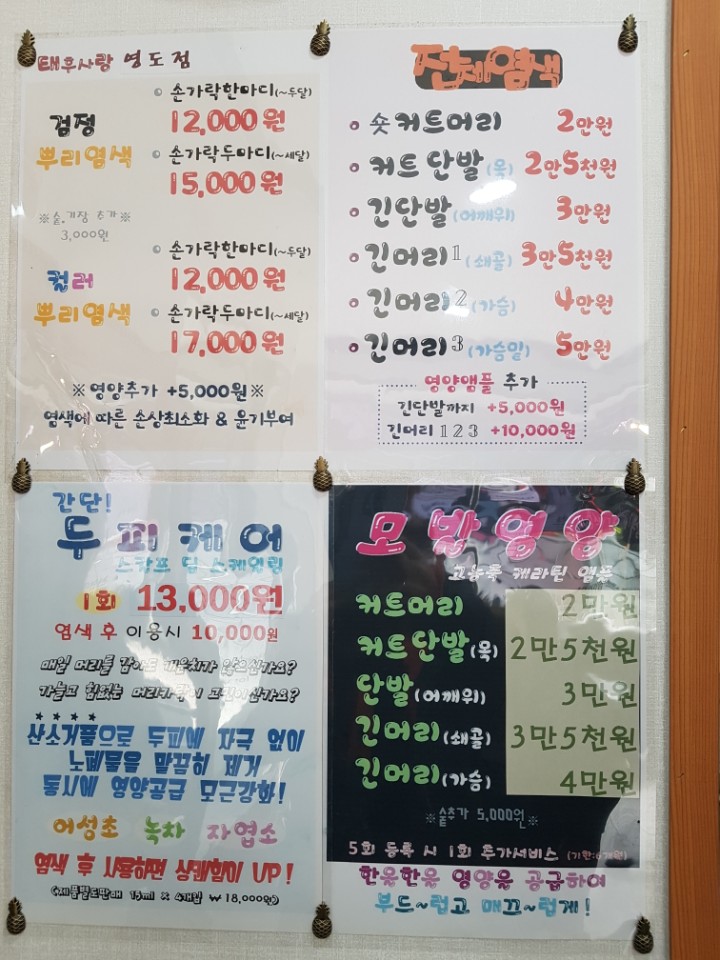 태후사랑 영도점
검정
뿌리염색
손가락한마디(~두달)
12,000원
손가락두마디(~세달)
15,000원
※숱,기장 추가※
3,000원
컬러
뿌리염색
손가락한마디(~두달)
12,000원
손가락두마디(~세달)
17,000원
※영양추가 +5,000원※
염색에 따른 손상최소화 & 윤기부여
전체염색
숏커트머리 2만원
커트단발(목) 2만5천원
긴단발(어깨위) 3만원
긴머리1(쇄골) 3만5천원
긴머리2(가슴) 4만원
긴머리3(가슴밑) 5만원
영양앰플 추가
긴단발까지 +5,000원
긴머리 1 2 3 +10,000원
간단!
두피케어
스칼프 딥 스케일링
1회 13,000원
염색 후 이용시 10,000원
매일 머리를 감아도 개운치가 않으신가요?
가늘고 힘없는 머리카락이 고민이신가요?
산소거품으로 두피에 자극 없이
노폐물을 말끔히 제거
동시에 영양공급 모근강화!
어성초 녹차 자엽소
염색 후 사용하면 상쾌함이 UP!
(제품별도판매 15ml x 4개입 ₩18,000원)
모발영양
고농축 케라틴 앰플
커트머리 2만원
커트단발(목) 2만5천원
단발(어깨위) 3만원
긴머리(쇄골) 3만5천원
긴머리(가슴) 4만원
※숱추가 5,000원※
5회 등록 시 1회 추가서비스 (기한:6개월)
한올한올 영양을 공급하여
부드~럽고 매끄~럽게!